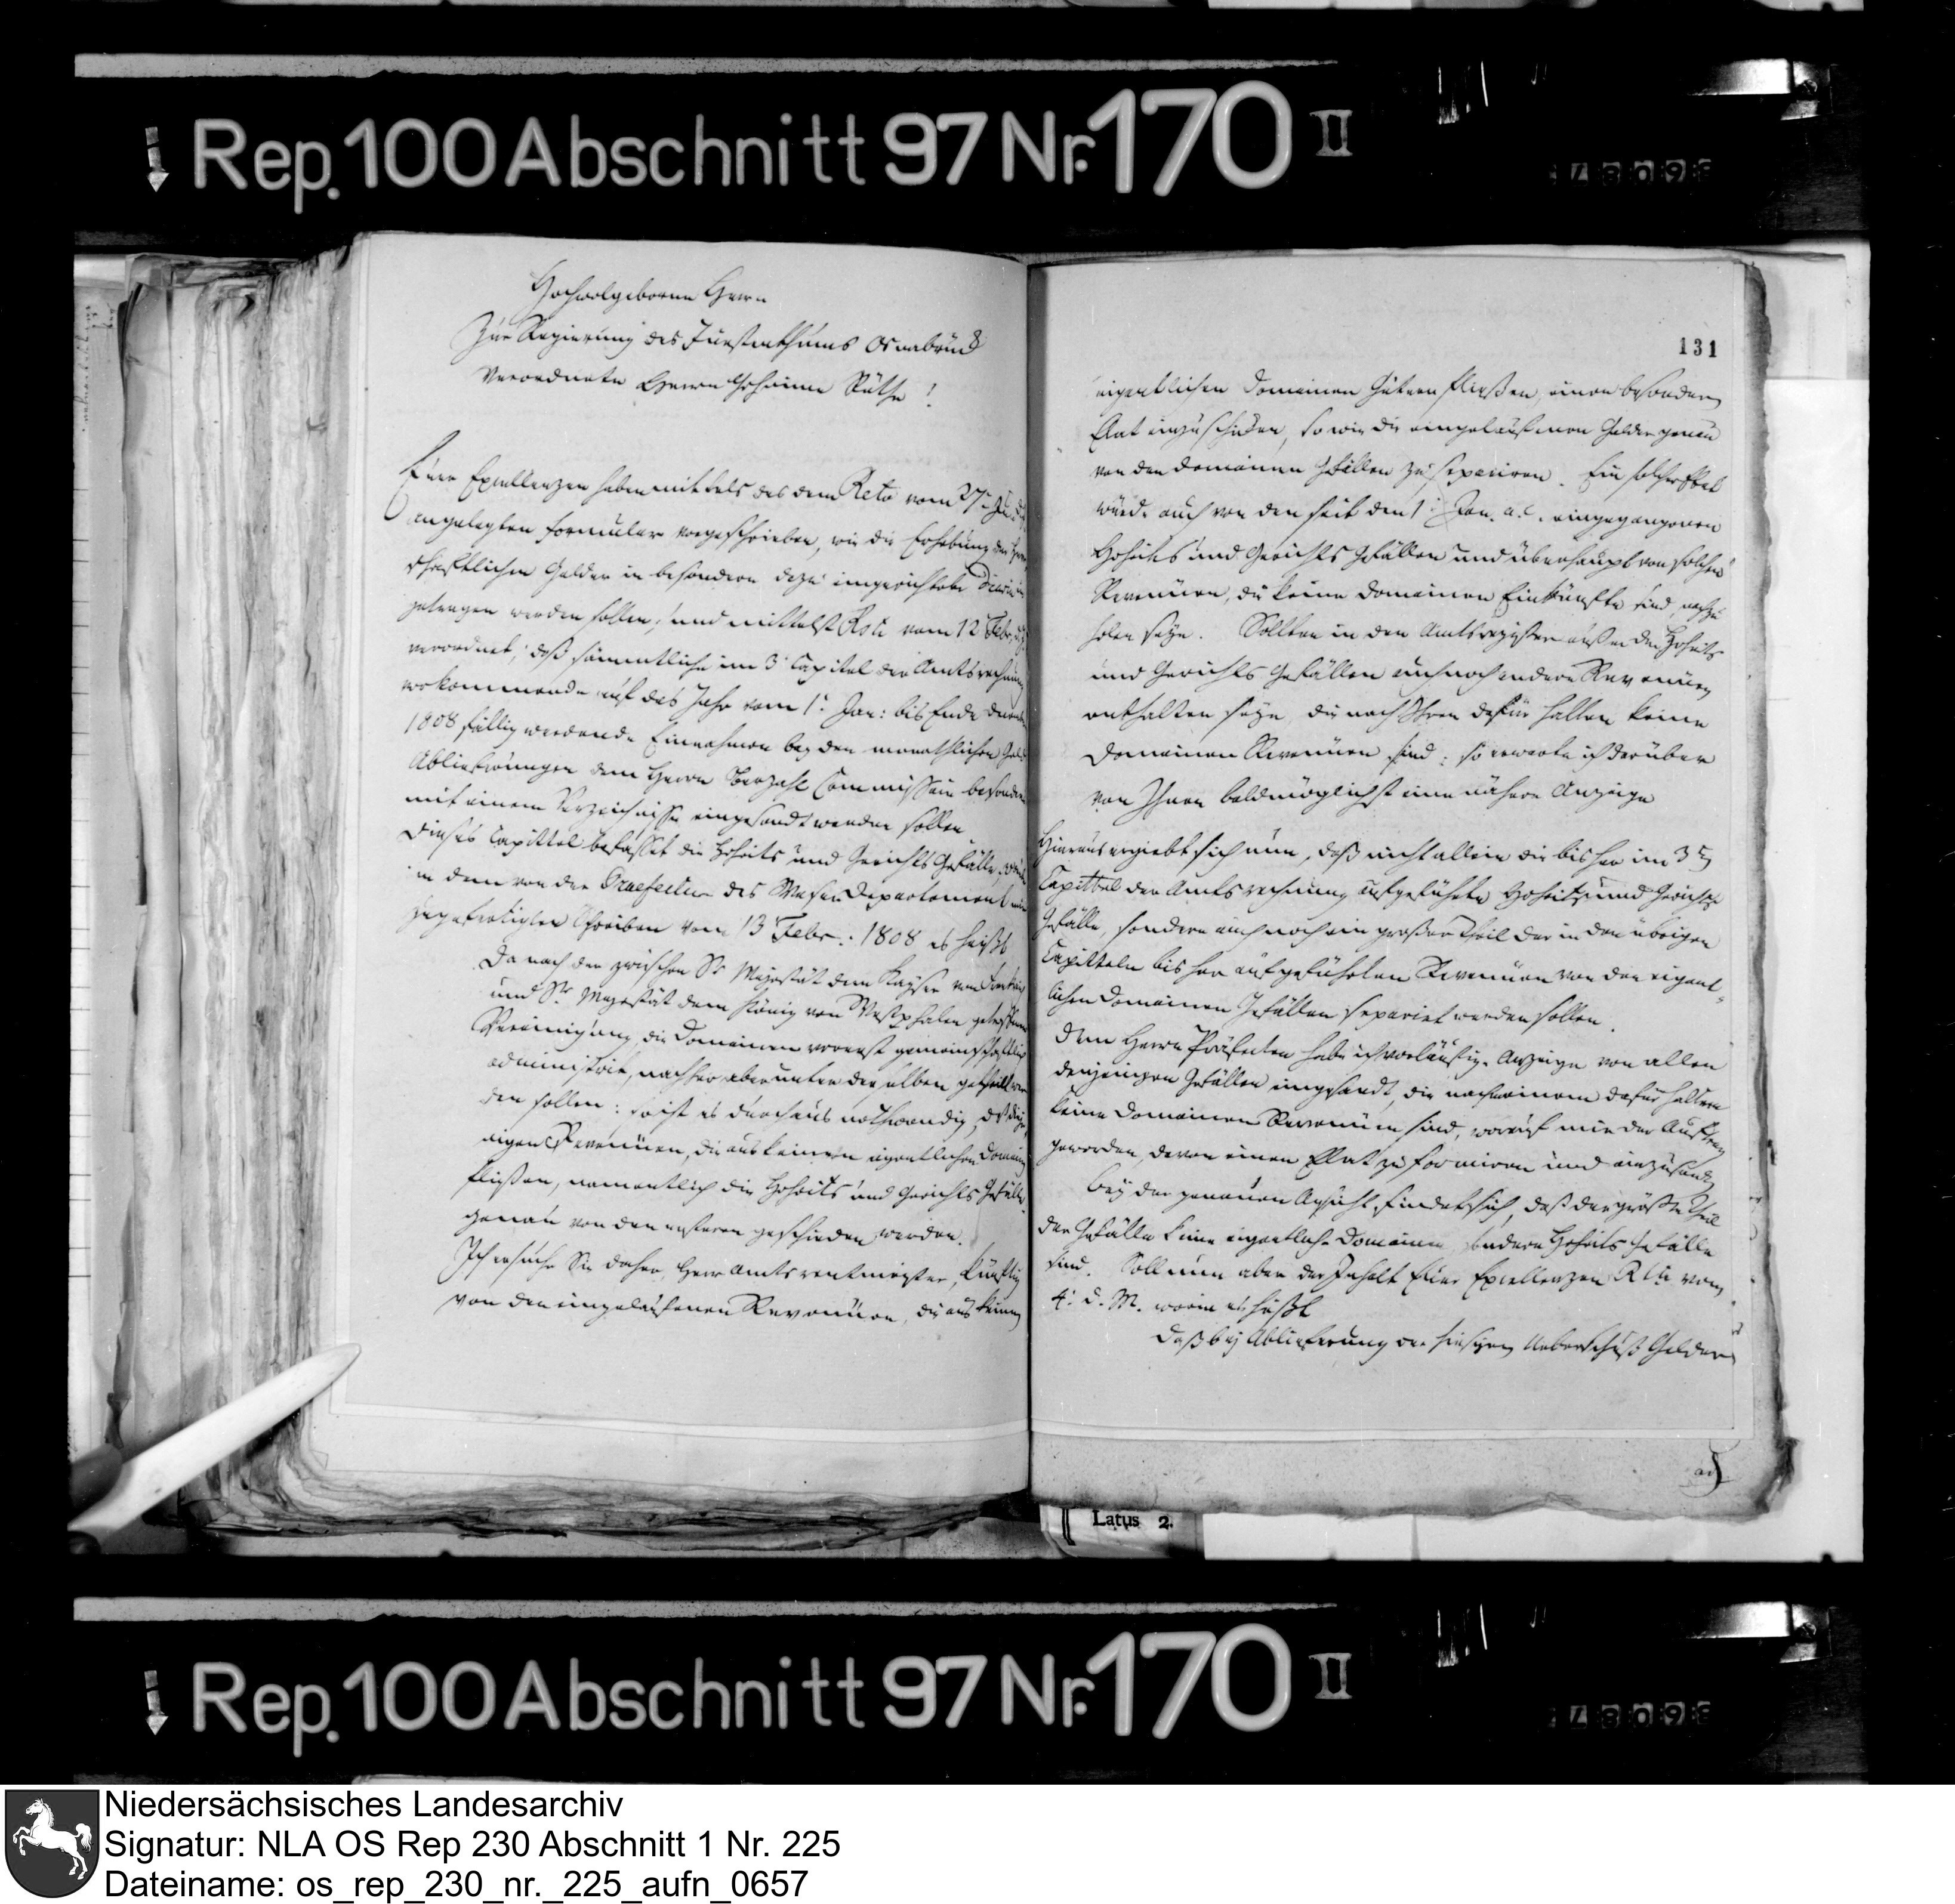 Rep. 100 Abschnitt 97 Nr. 170 II
Hochwolgeborne Herrn
Zur Regierung des Fürstenthums Osnabrück
Verordnete Herrn Geheime Räthe!
Euer Excellenzen haben mittels des dem Rcto vom 27t
angelegten Formular vorgeschrieben, wie die Erhebung der
schaftlichen Gelder in besondere dazu eingerichtete Diaria
getragen werden sollen; und mittelst Rcti vom 12 Febr.
verordnet, daß sämmtliche im 3t Capitel der Amtsrechnung
vorkommende auf das Jahr vom 1t Jan: bis Ende
1808 fällig werdende Einnahmen bey den monathlichen Geld
Ablieferungen dem Herrn Oberzahl Commissair besonders
mit einem Verzeichnisse eingesandt werden sollen.
Dieses Capittel befasset die Hoheits und Gerichts Gefälle,
in dem von der Praefectur des Weser Departement
zugefertigten Schreiben vom 13 Febr.: 1808 es heißt
Da nach der zwischen Sr Majestät dem Kayser von
und Sr Majestät dem König von Westphalen getroffenen
Vereinigung, die Domainen vorerst gemeinschaftlich
administrirt, nachher aber unter denselben getheilt wer
den sollen: so ist es durchaus nothwendig, daß
nigen Revenüen, die aus keinen eigentlichen Domainen
fließen, namentlich die Hoheits und Gerichts Gefälle
genau von den ersteren geschieden werden.
Ich ersuche Sie daher, Herr Amtsrentmeister, künftig
von den eingelaufenen Revenüen, die aus keinen
131
eigentlichen Domainen Gütern fließen, einen besondern
Etat einzuschicken, so wie die eingelaufenen Gelder genau
von den Domainen Gefällen zu separiren. Ein solcher Etat
würde auch von den seit dem 1t Jan. a. c. eingegangenen
Hoheits und Gerichts Gefällen und überhaupt von solchen
Revenüen, die keine Domainen Einkünfte sind, nachzu
holen seyn. Sollten in den Amtsregistern außer den Hoheits
und Gerichts Gefällen auch noch andere Revenüen
enthalten seyn, die nach Ihren dafür halten keine
Domainen Revenüen sind: so erwarte ich darüber
von Ihnen baldmöglichst eine nähere Anzeige
Hieraus ergiebt sich nun, daß nicht allein die bisher im 3ten
Capittel der Amtsrechnung aufgeführte Hoheits und Gerichts
Gefälle, sondern auch noch ein großer Theil der in den übrigen
Capitteln bisher aufgeführten Revenüen von den eigent-
lichen Domainen Gefällen separiret werden sollen.
Dem Herrn Präfecten habe ich vorläufige Anzeige von allen
denjenigen Gefällen eingesandt, die nach meinem dafür halten
keine Domainen Revenüen sind, worauf mir der Auftrag
geworden, davon einen Etat zu formiren und einzusenden
Bey der genauen Ansicht findet sich, daß der größte Theil
der Gefälle keine eigentliche Domainen sondern Hoheits Gefälle
sind. Soll nun aber der Inhalt Euer Excellenzen Rcti vom
4t d. M. worin es heißt
daß bey Ablieferung der hiesigen Ueberschuß Gelder
Latus 2.
Rep. 100 Abschnitt 97 Nr. 170 II
Niedersächsisches Landesarchiv
Signatur: NLA OS Rep 230 Abschnitt 1 Nr. 225
Dateiname: os_rep_230_nr._225_aufn_0657